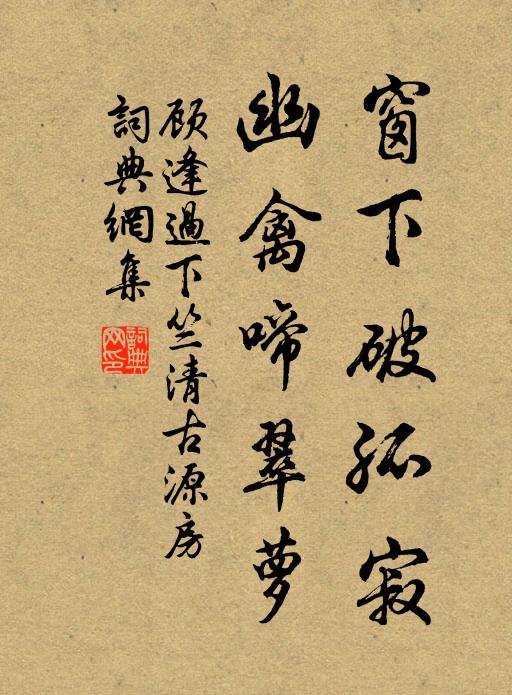 窗下破孤寂
幽禽啼翠萝
顾逢過下竺清古源房
詞典網集
詞典网印